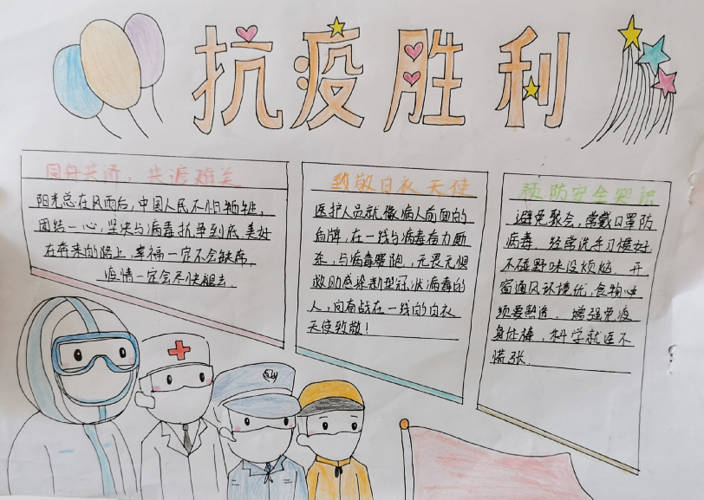 抗疫胜利
同舟共济，共渡难关
阳光总在风雨后，中国人民不怕牺牲，
团结一心，坚决与病毒抗争到底，美好
在奔来的路上，幸福一定不会缺席，
疫情一定会尽快褪去。
致敬白衣天使
医护人员就像病人前面的
盾牌，在一线与病毒奋力厮
杀，与病毒赛跑，无畏无惧
救助感染新型冠状病毒的
人，向奋战在一线的白衣
天使致敬！
预防安全知识
避免聚会，常戴口罩防
病毒，经常洗手习惯好
不碰野味没烦恼，开
窗通风环境优，食物
须要熟透，增强免疫
身体棒，科学就医不
慌张.